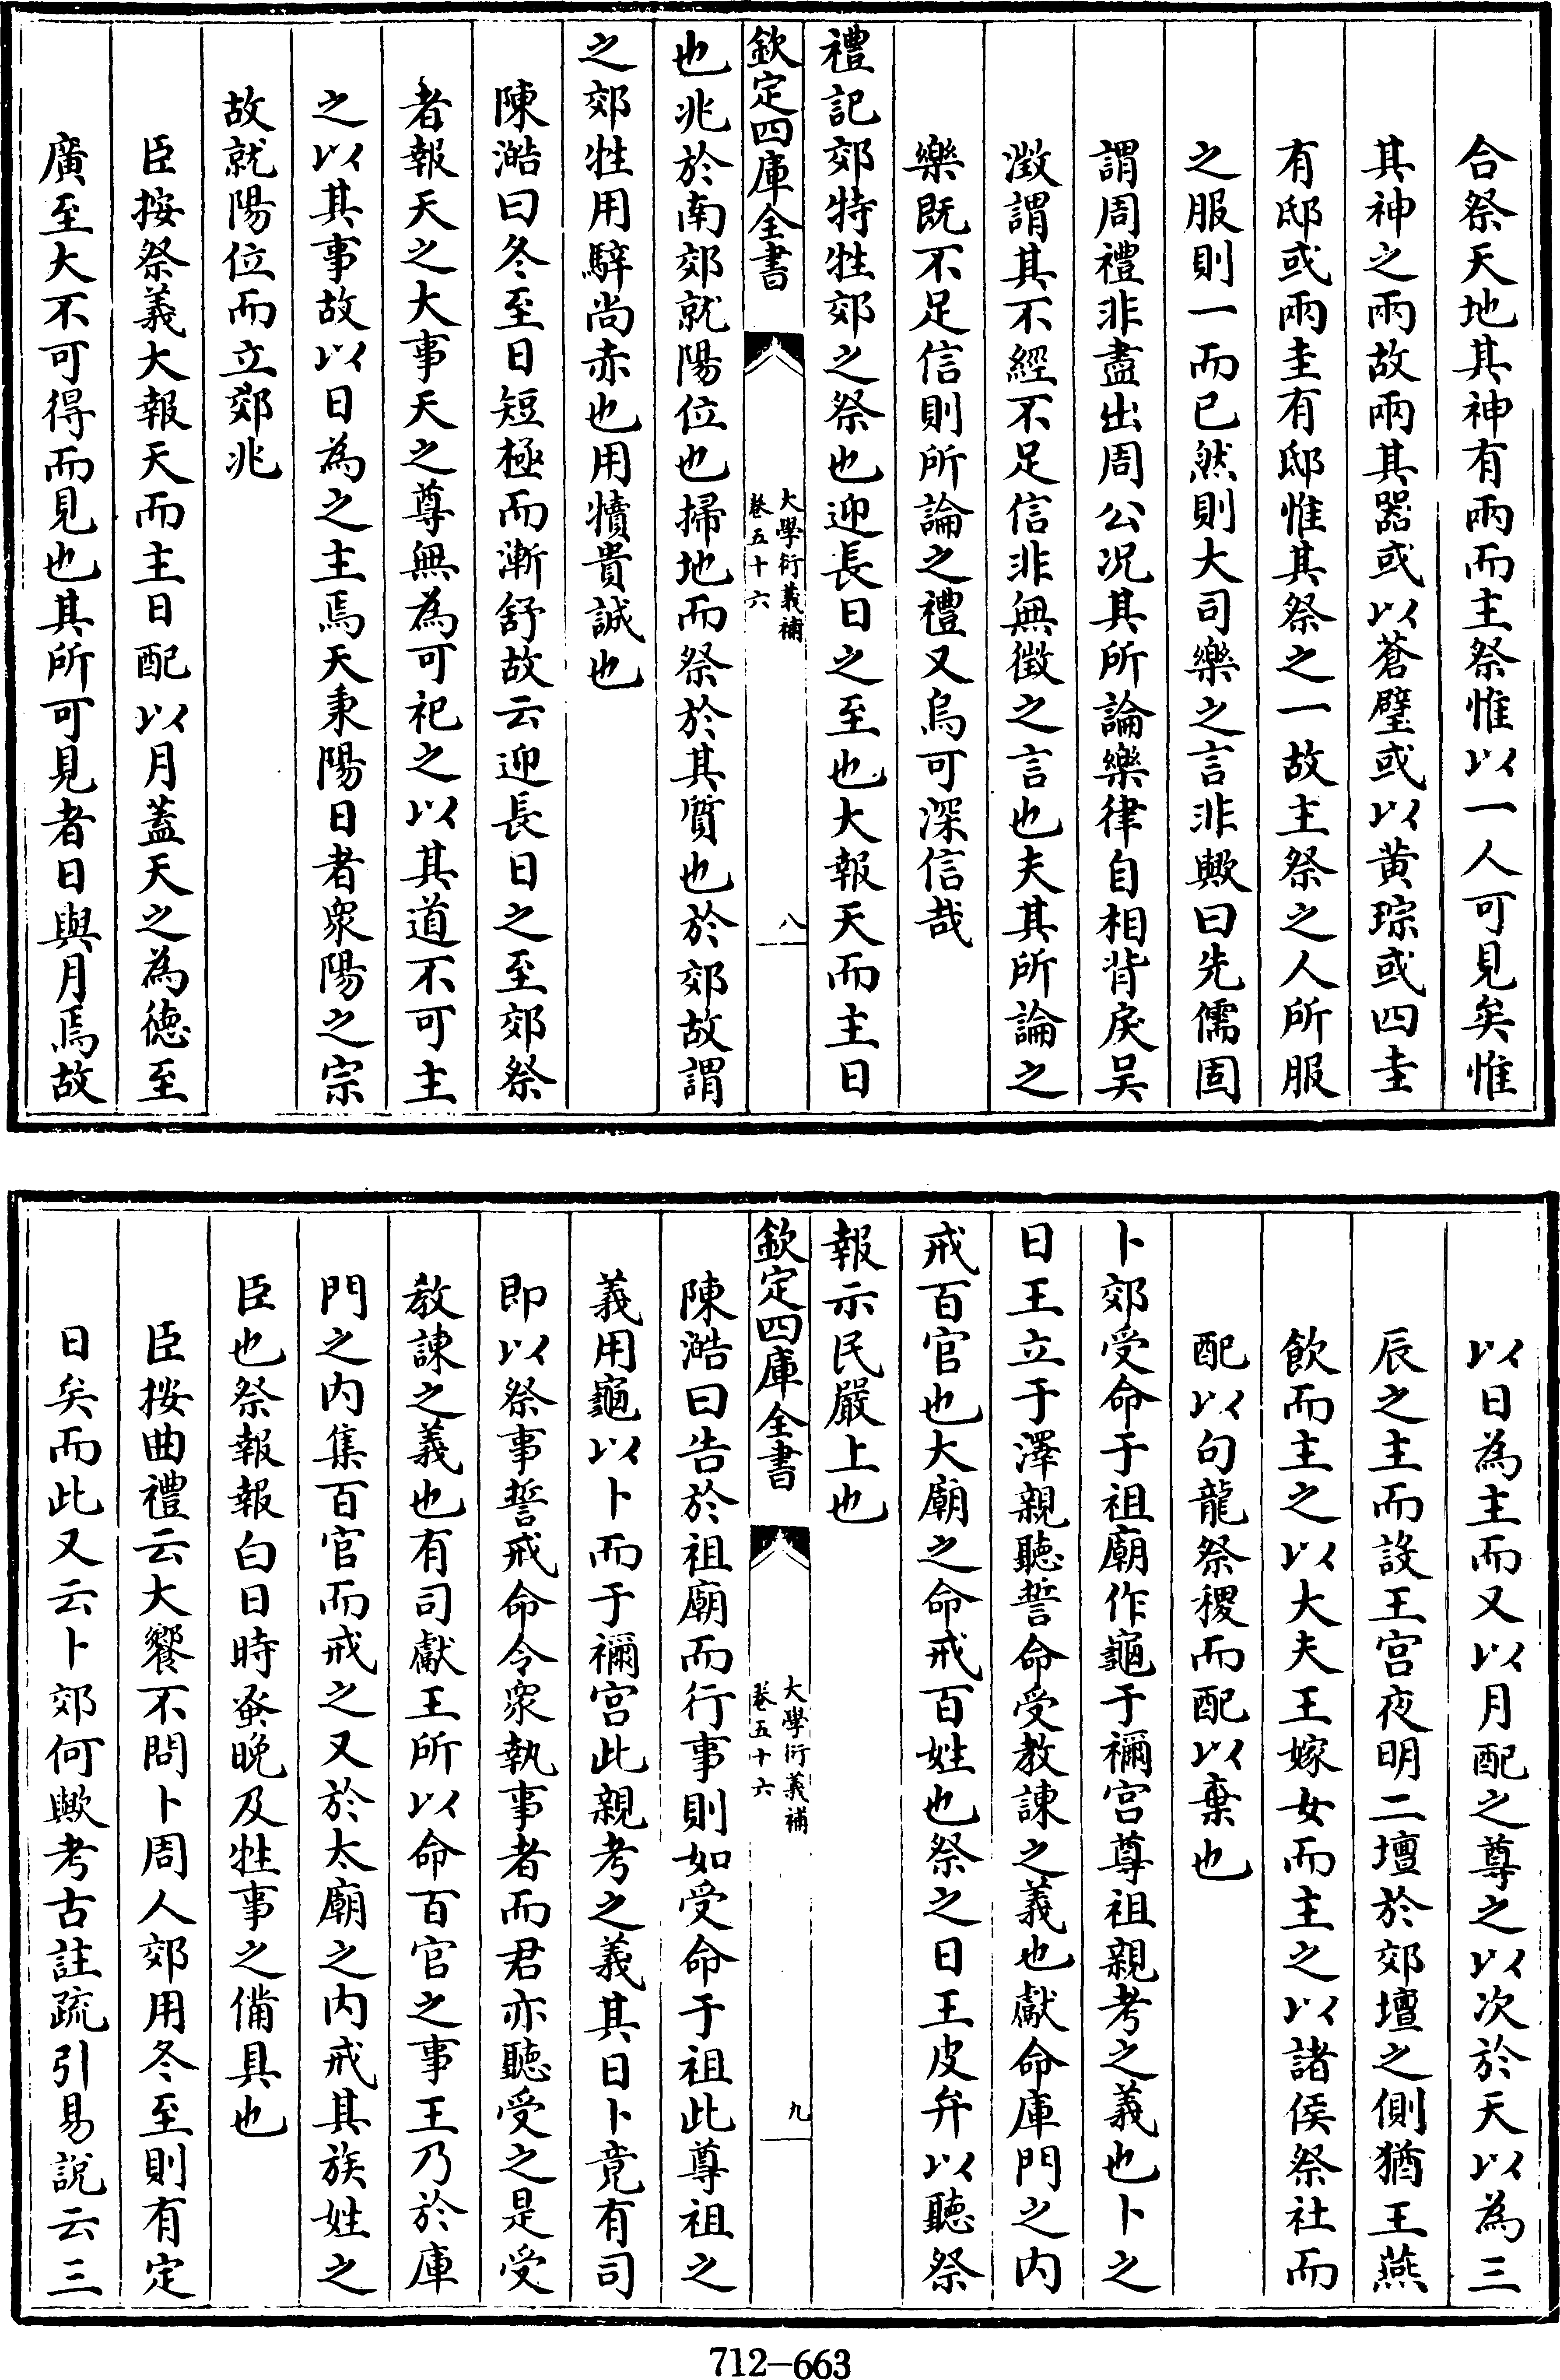 合祭天地其神有兩而主祭惟以一人可見矣惟
其神之兩故兩其器或以蒼璧或以黄琮或四圭
有邸或兩圭有邸惟其祭之一故主祭之人所服
之服則一而已然則大司樂之言非歟曰先儒固
謂周禮非盡出周公况其所論樂律自相背戾吴
澂謂其不經不足信非無徴之言也夫其所論之
樂既不足信則所論之禮又烏可深信哉
禮記郊特牲郊之祭也迎長日之至也大報天而主日
欽定四庫全書
大學衍義補
卷五十六
八
也兆於南郊就陽位也掃地而祭於其質也於郊故謂
之郊牲用騂尚赤也用犢貴誠也
陳澔曰冬至日短極而漸舒故云迎長日之至郊祭
者報天之大事天之尊無為可祀之以其道不可主
之以其事故以日為之主焉天秉陽日者衆陽之宗
故就陽位而立郊兆
臣按祭義大報天而主日配以月蓋天之為德至
廣至大不可得而見也其所可見者日與月焉故
以日為主而又以月配之尊之以次於天以為三
辰之主而設王宫夜明二壇於郊壇之側猶王燕
飲而主之以大夫王嫁女而主之以諸侯祭社而
配以句龍祭稷而配以棄也
卜郊受命于祖廟作龜于禰宫尊祖親考之義也卜之
日王立于澤親聽誓命受教諫之義也獻命庫門之内
戒百官也大廟之命戒百姓也祭之日王皮弁以聽祭
報示民嚴上也
欽定四庫全書
大學衍義補
卷五十六
九
陳澔曰告於祖廟而行事則如受命于祖此尊祖之
義用龜以卜而于禰宫此親考之義其日卜竟有司
即以祭事誓戒命令衆執事者而君亦聽受之是受
教諫之義也有司獻王所以命百官之事王乃於庫
門之内集百官而戒之又於太廟之内戒其族姓之
臣也祭報報白日時蚤晚及牲事之備具也
臣按曲禮云大饗不問卜周人郊用冬至則有定
日矣而此又云卜郊何歟考古註疏引易說云三
712-663